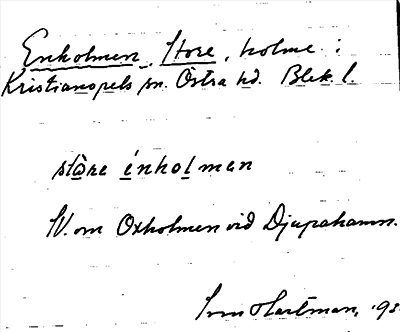 Enholmen, Store, holme i
Kristianopels sn. Östra hd. Blek. l.
stòre ínholmen
V. om Oxholmen vid Djupahamn.
Sven Hartman,